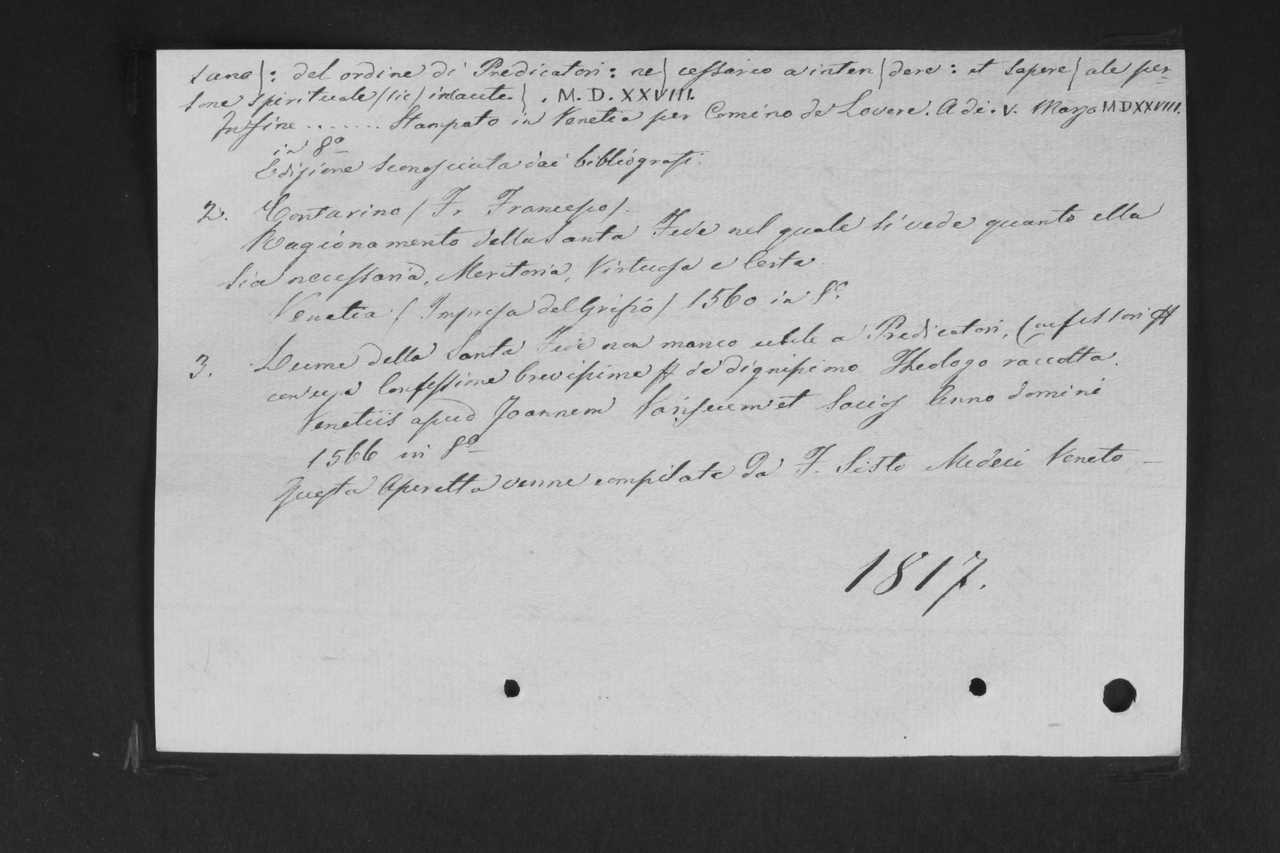 sano/: del ordine di Predicatori: ne/ cessario a inten/dere: et sapere/ ale per=
sone spirituale/(sic) incaute./. M.D.XXVIII.
Infine ....... Stampato in Venetia per Comino de Lovere. A di. V. Marzo MDXXVIII.
in 8º
Edizione sconosciuta dai bibliografi.
2. Contarino (Fr. Francesco).
Ragionamento della Santa Fede nel quale si vede quanto ella
sia necessaria, Meritoria, Virtuosa e Certa
Venetia (Impresa del Grifio) 1560 in 8º
3. Lume della Santa Fede non manco utile a Predicatori, Confessori
con una Confessione brevissima de dignissimo Theologo raccolta.
Venetiis apud Joannem et Socios Anno domini
1566 in 8º
Questa Operetta venne compilata da F. Sisto Medici Veneto —
1817.